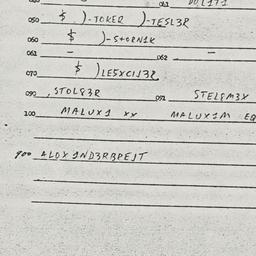 050 $ )-TOKER )-TESL3R
060 $ )-STORN1X
061 - 062 -
070 $ )LE5XC1J3R
090 , STOL83R 091 STELPM3X
100 MALUX1 XX MALUX1M EQ
900 ALOX1ND3RBPEJT